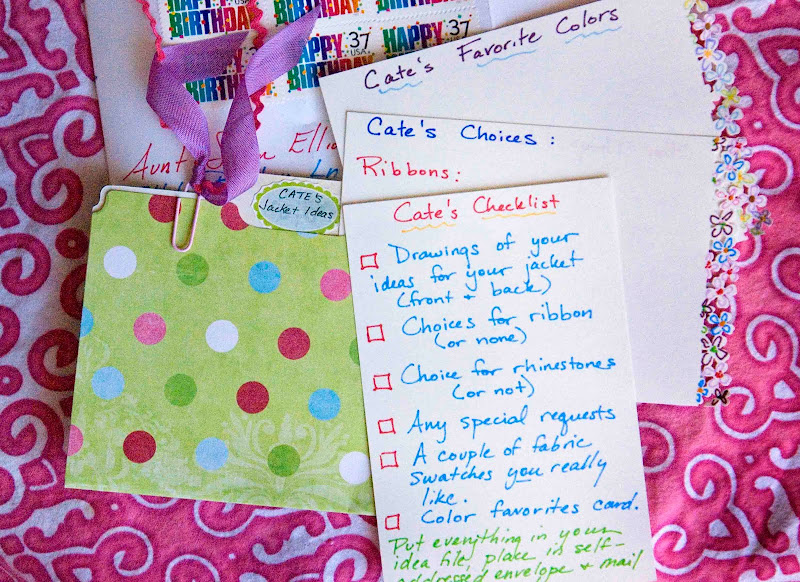 HAPPY 37 HAPPY 37 HAPPY 37
BIRTHDAY USA BIRTHDAY
HAPPY 37
BIRTHDAY USA
Cate's Favorite Colors
Cate's Choices :
Ribbons:
Aunt
CATE'S
Jacket Ideas
Cate's Checklist
Drawings of your
ideas for your jacket
(front + back)
Choices for ribbon
(or none)
Choice for rhinestones
(or not)
Any special requests
A couple of fabric
swatches you really
like.
Color favorites card.
Put everything in your
idea file, place in self-
addressed envelope + mail